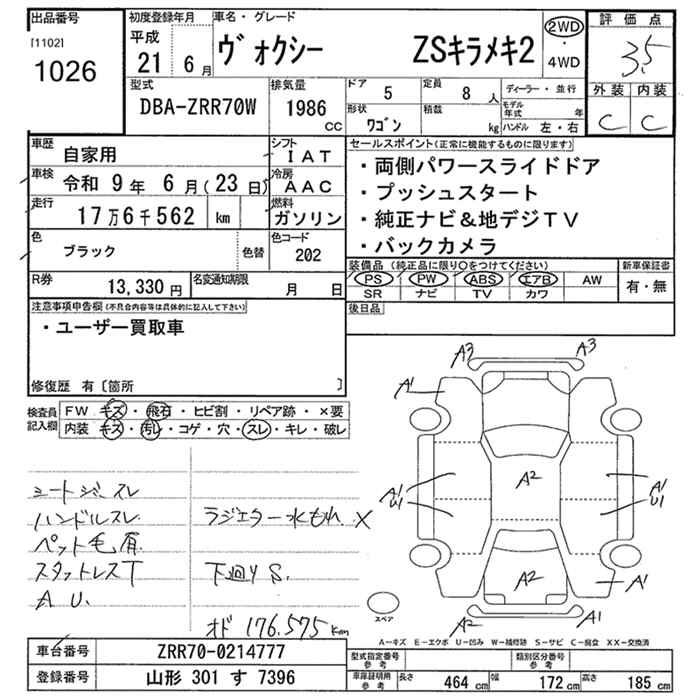 出品番号
[1102]
1026
初度登録年月
平成
21 6月
車名・グレード
ヴォクシー ZSキラメキ2
2WD
・
4WD
評価点
3.5
外装 内装
C C
型式
DBA-ZRR70W
排気量
1986
CC
ドア
5
定員
8 人
形状
ワゴン
積載
kg
ディーラー・並行
モデル年式 年
ハンドル 左・右
車歴
自家用
シフト
IAT
車検
令和 9年 6月(23日)
冷房
AAC
走行
17万6千562 km
燃料
ガソリン
色
ブラック
色替
色コード
202
R券
13,330円
名変通知期限
月 日
セールスポイント(正常に機能するものに限ります)
・両側パワースライドドア
・プッシュスタート
・純正ナビ&地デジTV
・バックカメラ
装備品 (純正品に限り○をつけてください)
PS PW ABS エアB AW
SR ナビ TV カワ
新車保証書
有・無
後日品
注意事項申告欄(不具合内容等は具体的に記入して下さい)
・ユーザー買取車
修復歴 有〔箇所 〕
検査員
記入欄
FW キズ・飛石・ヒビ割・リペア跡・×要
内装 キズ・汚レ・コゲ・穴・スレ・キレ・破レ
シートシミ、スレ
ハンドルスレ
ペット毛有
スタットレスT
A U.
ラジエター水もれ X
下廻り S.
オド 176,575 km
A3 A3
A1
A2
A1
U1
A1
U1
A2
A1
A2 A1
スペア
A-キズ E-エクボ U-凹み W-補修跡 S-サビ C-腐食 XX-交換済
車台番号
ZRR70-0214777
登録番号
山形 301 す 7396
型式指定番号
参考
類別区分番号
参考
車庫証明用
参考
長さ 464 cm 幅 172 cm 高さ 185 cm